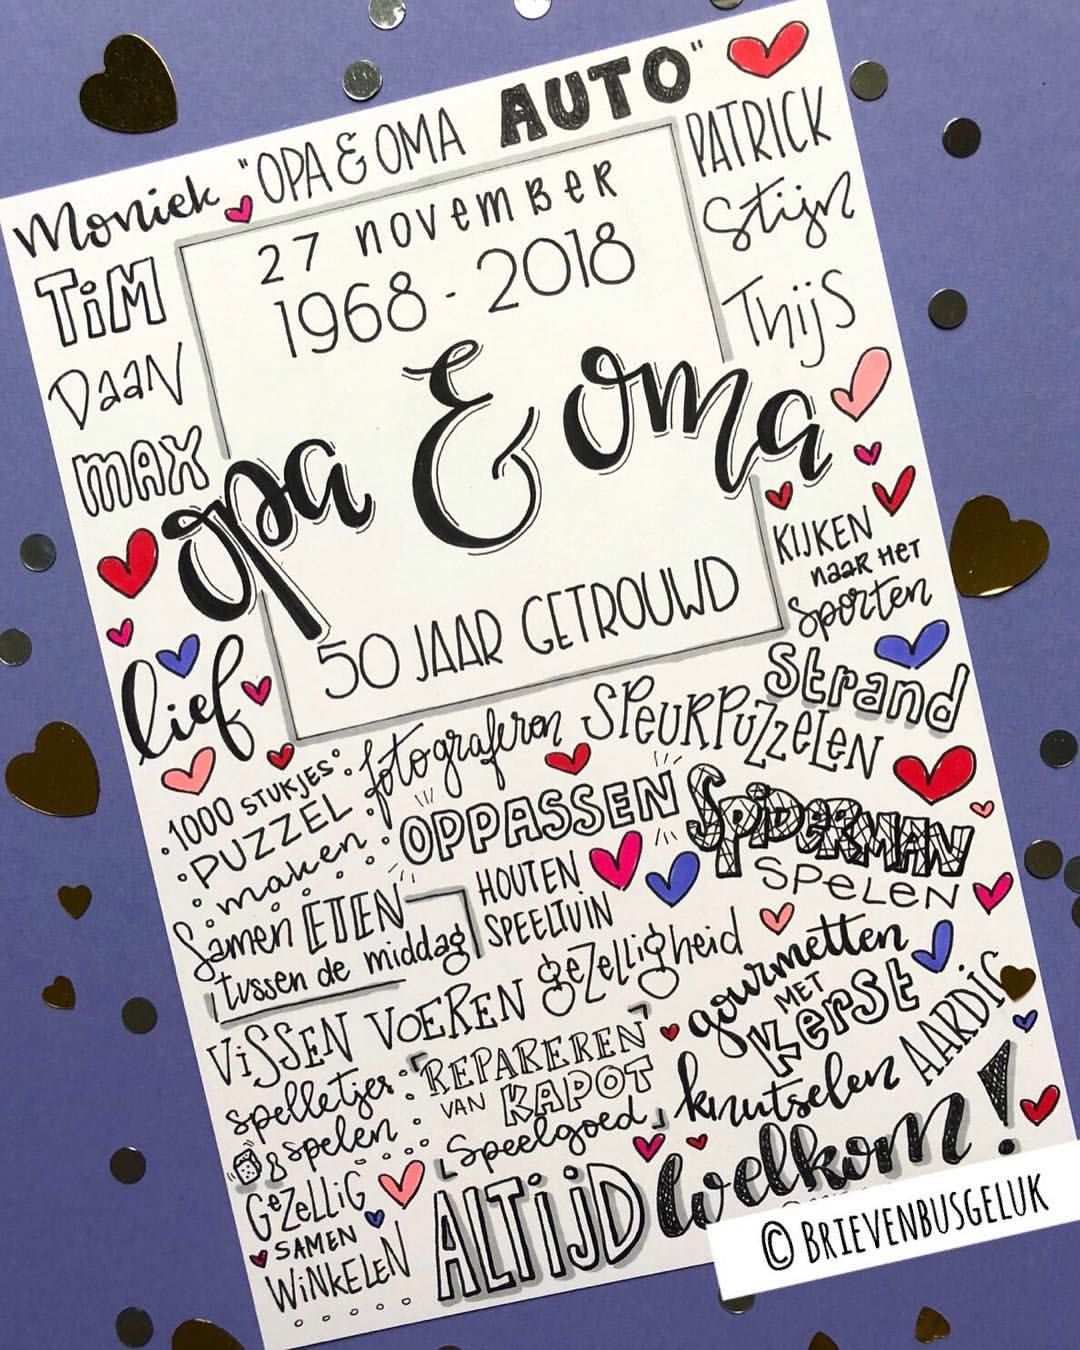 "OPA & OMA AUTO"
Moniek
TiM
DaaN
maX
PATRICK
Stijn
ThijS
27 november
1968 - 2018
opa & oma
50 JAAR GETROUWD
lief
KIJKEN
naar het
sporten
Strand
fotograferen
SPeURPuZZeLEN
1000 STUKJES
PUZZEL
maken
OPPASSEN
SPiDERMAN
SPeLeN
Samen ETEN
tussen de middag
HOUTEN
SPEELTUIN
geZelligheid
gourmetten
MET
Kerst
AARDIG
ViSSEN VOEREN
spelletjes
spelen
"REPAREREN"
VAN KAPOT
Speelgoed
knutselen
GeZELLiG
SAMEN
WiNKELEN
ALTijD welkom!
© BRIEVENBUSGELUK